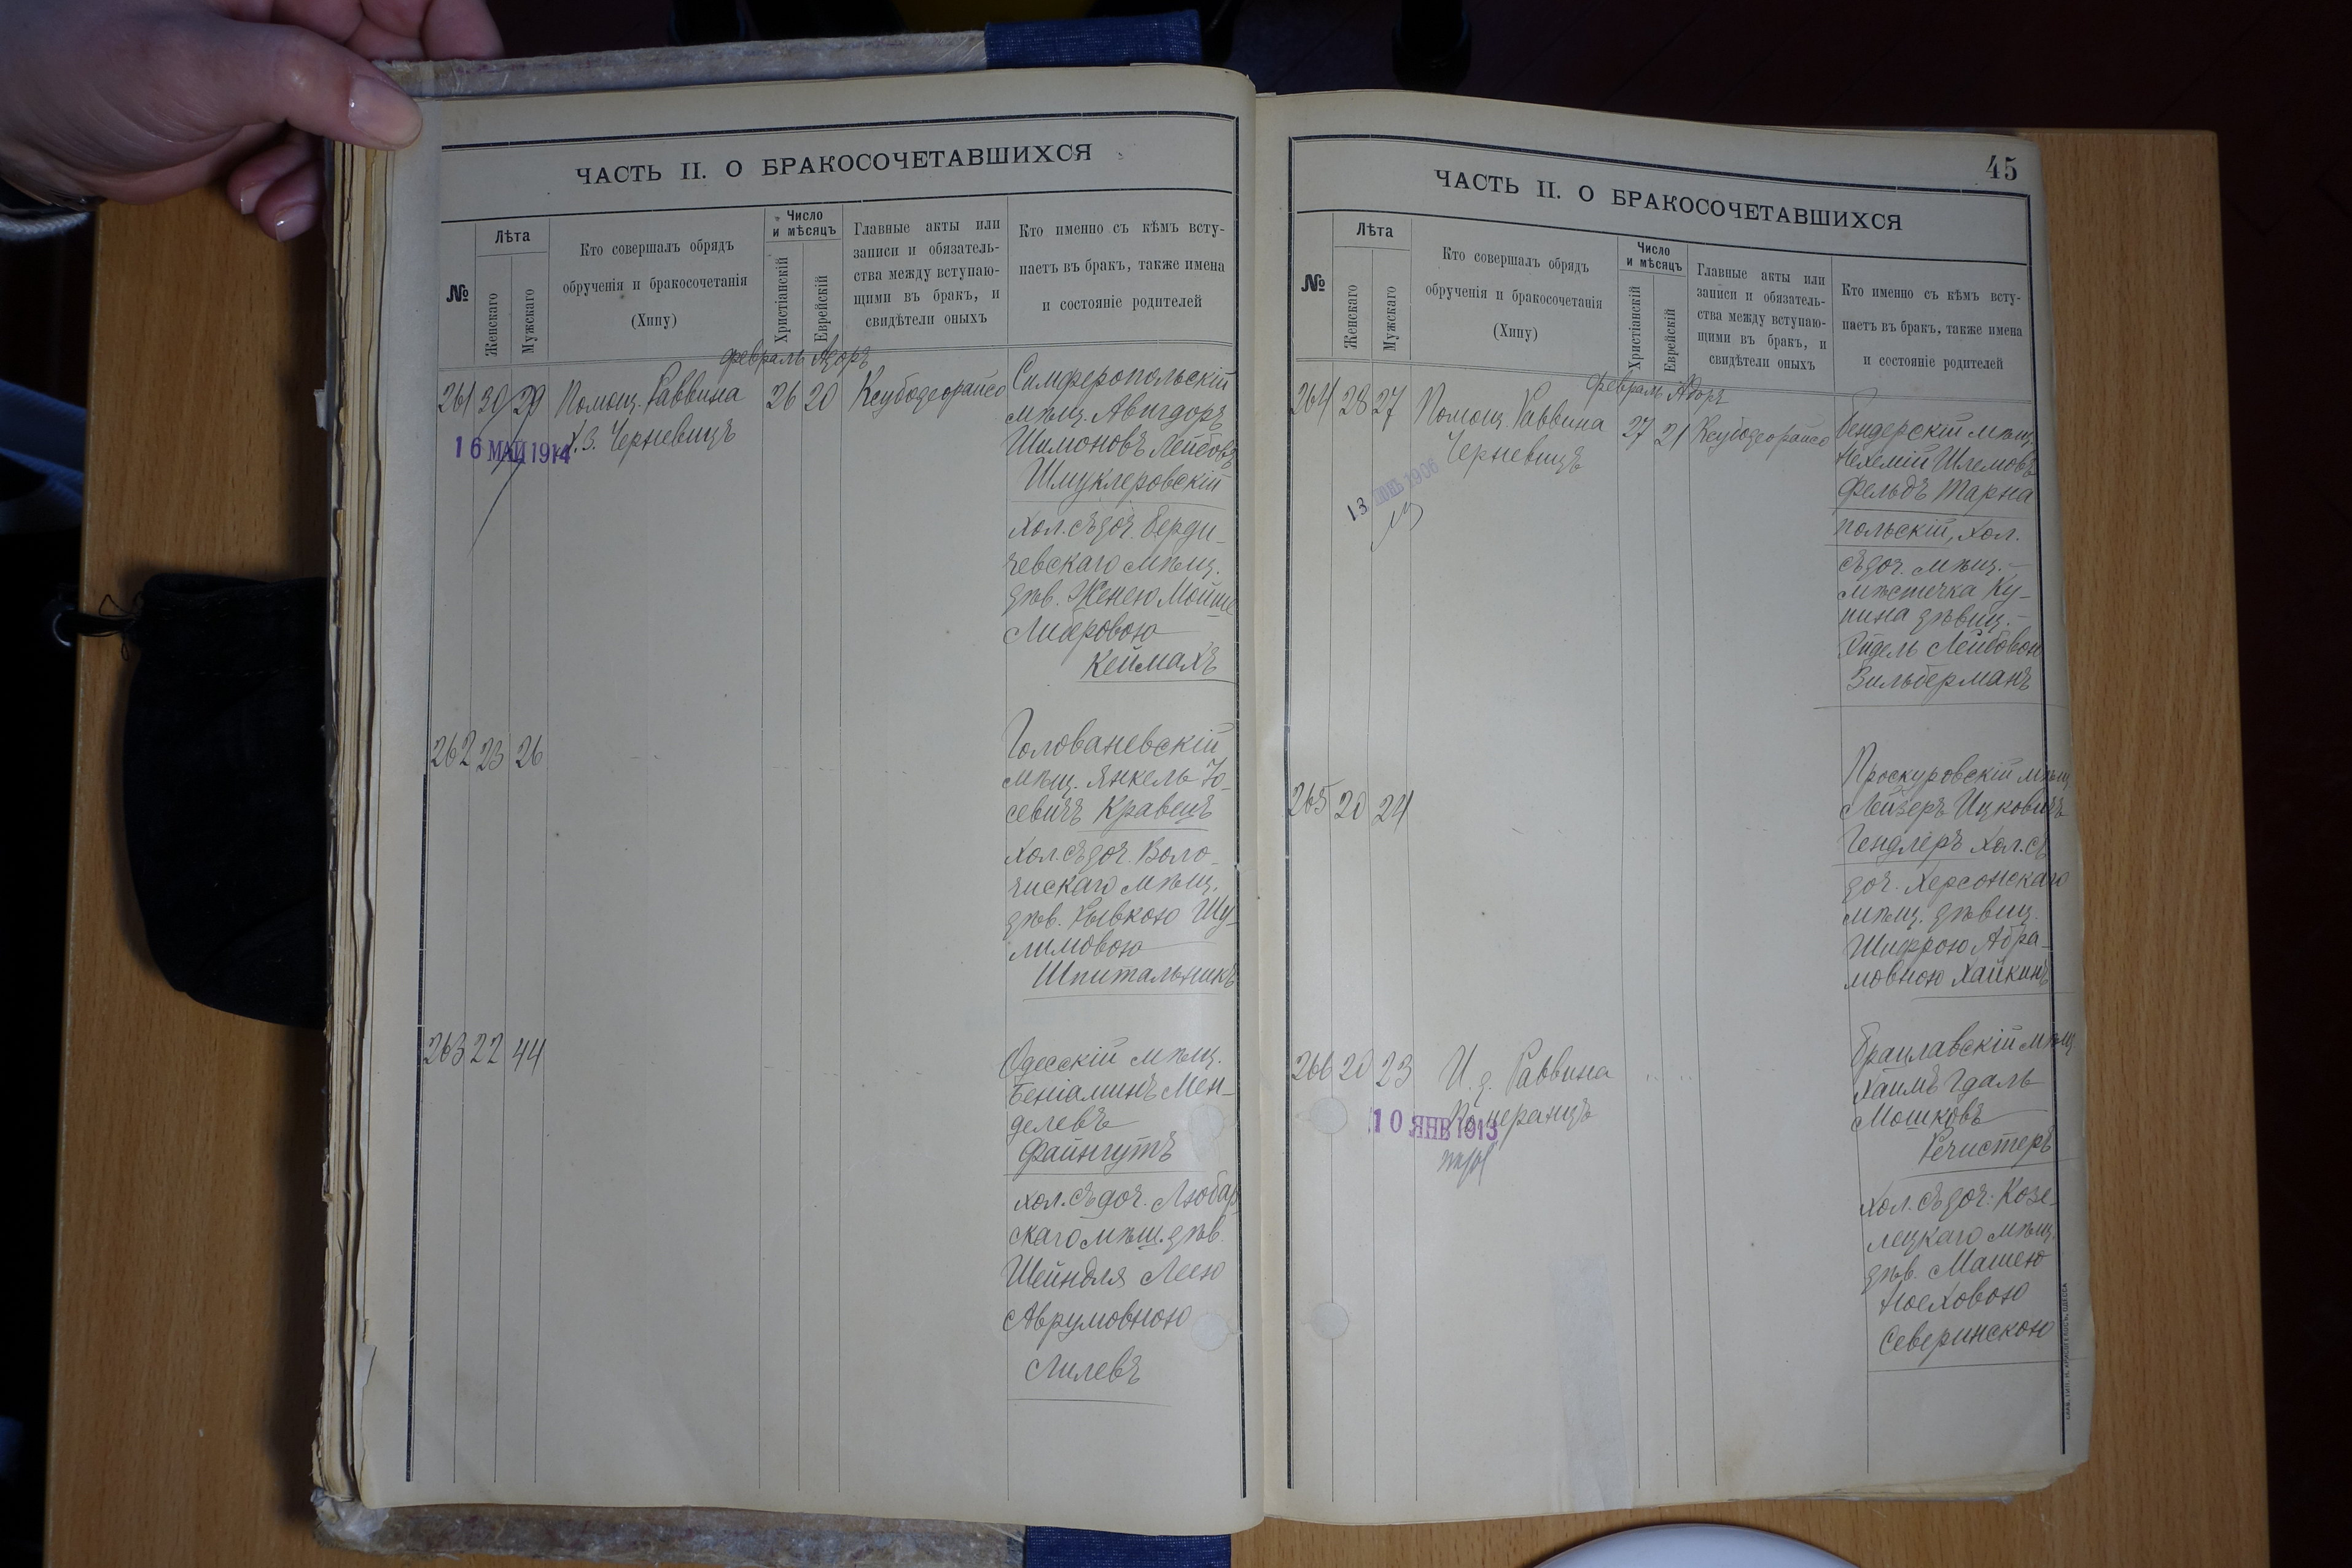 ЧАСТЬ II. О БРАКОСОЧЕТАВШИХСЯ
№
Лѣта
Женскаго
Мужскаго
Кто совершалъ обрядъ
обрученія и бракосочетанія
(Хипу)
Число
и мѣсяцъ
Христіанскій
Еврейскій
Главные акты или
записи и обязатель-
ства между вступаю-
щими въ бракъ, и
свидѣтели оныхъ
Кто именно съ кѣмъ всту-
паетъ въ бракъ, также имена
и состояніе родителей
февраль Адоръ
261 30 29 Помощ. Раввина 26 20
Х.З. Черневицъ
16 МАЙ 1914
Симферопольскій
мѣщ. Авигдоръ
Шимоновъ Лейбовъ
Шмуклеровскій
хол. съ доч. Берди-
чевскаго мѣщ.
дѣв. Женею Мойше
Либеровою
Кеймахъ
262 23 26
Голованевскій
мѣщ. Янкель Іо-
севичъ Кравецъ
хол. съ доч. Воло-
чискаго мѣщ.
дѣв. Рывкою Шу-
лимовою
Шпитальникъ
263 22 44
Одесскій мѣщ.
Беніаминъ Мен-
делевъ
Файнгутъ
хол. съ доч. Любар
скаго мѣщ. дѣв.
Шейндля Леею
Аврумовною
Лилевъ
45
ЧАСТЬ II. О БРАКОСОЧЕТАВШИХСЯ
№
Лѣта
Женскаго
Мужскаго
Кто совершалъ обрядъ
обрученія и бракосочетанія
(Хипу)
Число
и мѣсяцъ
Христіанскій
Еврейскій
Главные акты или
записи и обязатель-
ства между вступаю-
щими въ бракъ, и
свидѣтели оныхъ
Кто именно съ кѣмъ всту-
паетъ въ бракъ, также имена
и состояніе родителей
февраль Адоръ
264 28 27 Помощ. Раввина 27 21
Черневицъ
13 ІЮНЬ 1906
Бендерскій мѣщ.
Нехемій Шлемовъ
Фельдъ Тарна
польскій, хол.
съ доч. мѣщ.
мѣстечка Ку-
пина дѣвиц.
Эйдель Лейбовою
Зильберманъ
265 20 24
Проскуровскій мѣщ.
Лейзеръ Ицковичъ
Гендлеръ хол. съ
доч. Херсонскаго
мѣщ. дѣвиц.
Шифрою Абра-
мовною Хайкинъ
266 20 23 И. д. Раввина
Померанцъ
10 ЯНВ 1913
Брацлавскій мѣщ.
Хаимъ Гдаль
Мошковъ
Речистеръ
хол. съ доч. Козе-
лецкаго мѣщ.
дѣв. Машею
Ноеховою
Северинскою